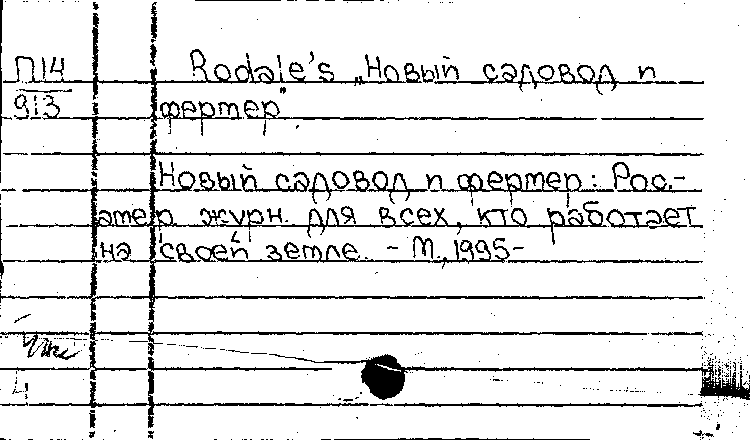 П14
913
Rodale's „Новый садовод и
фермер".
Новый садовод и фермер: Рос.-
амер. журн. для всех, кто работает
на своей земле. - М., 1995-